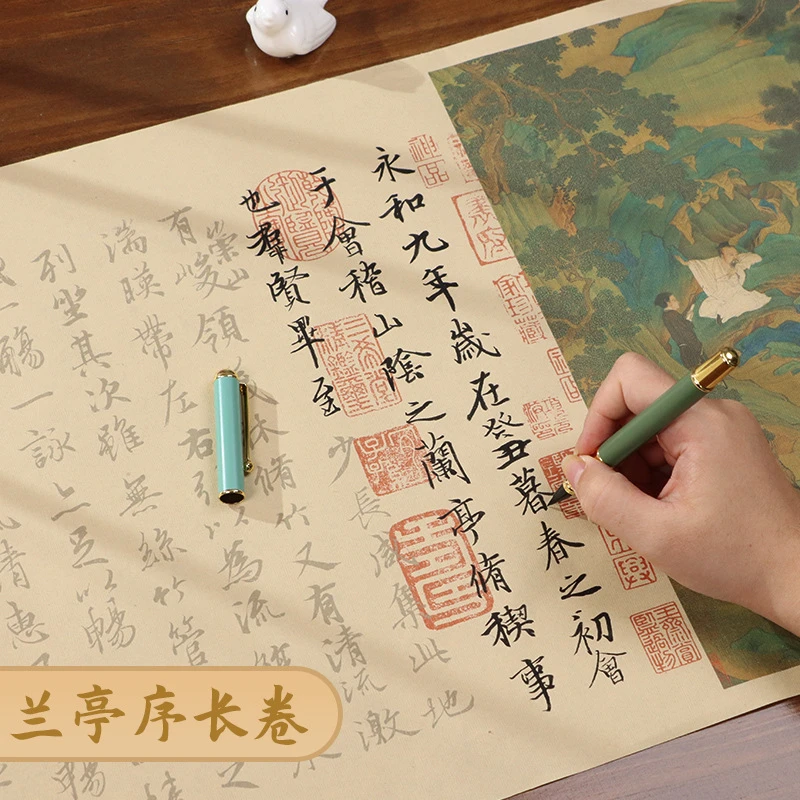 永和九年歲在癸丑暮春之初會
于會稽山陰之蘭亭脩稧事
也羣賢畢至少長咸集此地
有崇山峻領茂林脩竹又有清流激
湍暎帶左右引以為流觴水
列坐其次雖無絲竹管之
一觴一詠亦足以暢
清惠
暢
神品
兰亭序长卷